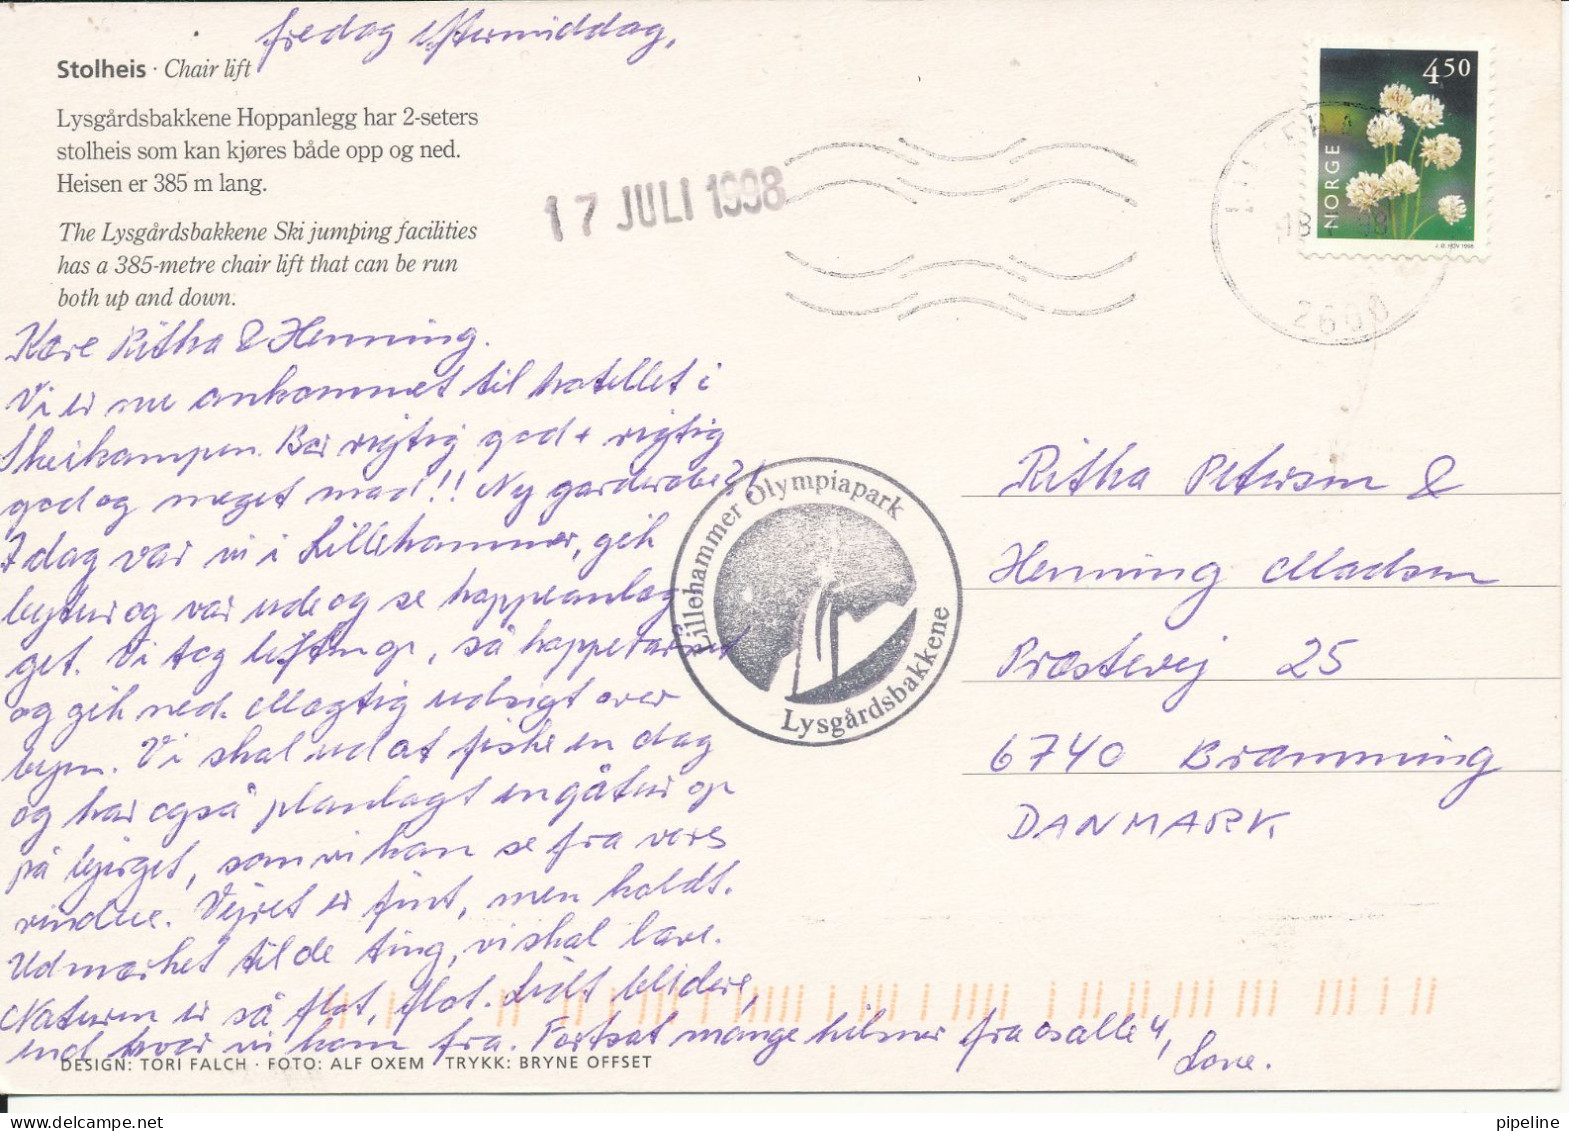 fredag eftermiddag,
Stolheis · Chair lift
Lysgårdsbakkene Hoppanlegg har 2-seters
stolheis som kan kjøres både opp og ned.
Heisen er 385 m lang.
The Lysgårdsbakkene Ski jumping facilities
has a 385-metre chair lift that can be run
both up and down.
17 JULI 1998
450
NORGE
2608
Kære Ritha & Henning.
Vi er nu ankommet til hotellet i
Skeikampen. Bor rigtig god + rigtig
god og meget mad!! Ny garderobe?!
I dag var vi i Lillehammer, gik
bytur og var ude og se hoppeanlæg
get. Vi tog liften op, så hopperårnet
og gik ned. Mægtig udsigt over
byen. Vi skal ud at fiske en dag
og har også planlagt en gåtur op
på bjerget, som vi kan se fra vores
vindue. Vejret er fint, men koldt.
Udmærket til de ting, vi skal lave.
Naturen er så flot, flot. Lidt blidere,
end hvor vi kom fra. Fortsat mange hilsner fra os alle 4,
Lone.
Lillehammer Olympiapark
Lysgårdsbakkene
Ritha Petersen &
Henning Madsen
Præstevej 25
6740 Bramming
DANMARK
DESIGN: TORI FALCH · FOTO: ALF OXEM · TRYKK: BRYNE OFFSET
pipeline